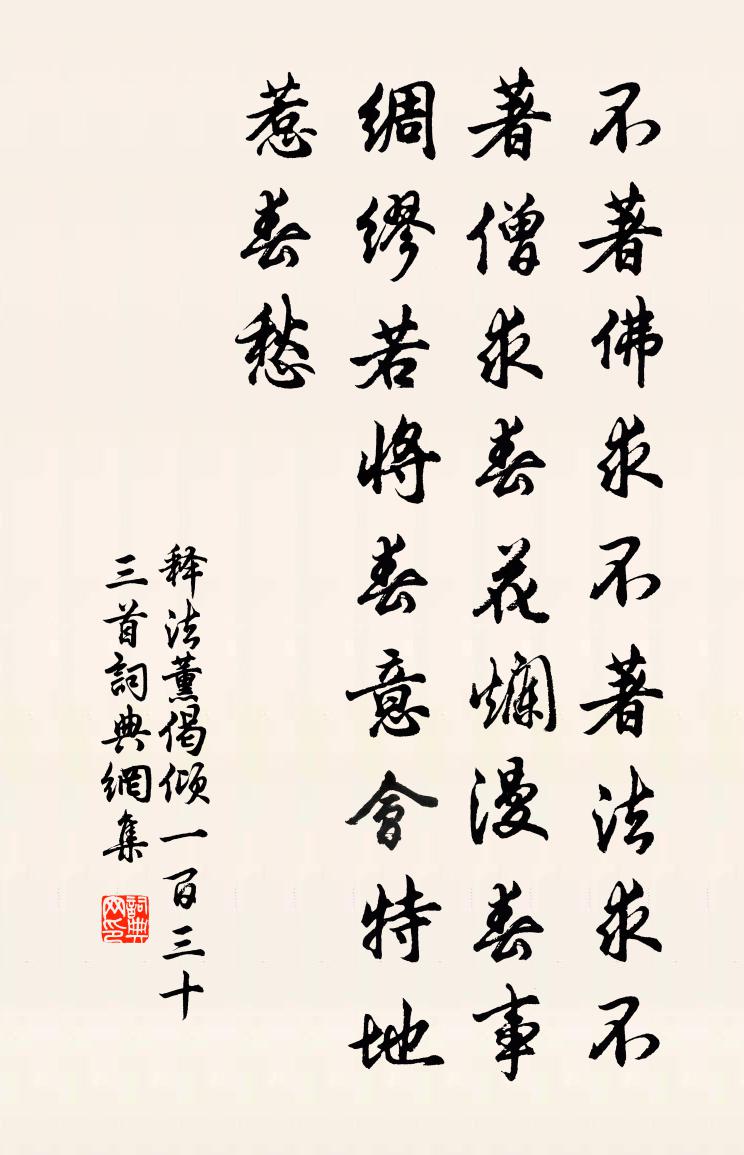 不著佛求不著法求不
著僧求春花爛漫春事
綢繆若將春意會特地
惹春愁
释法薰偈倾一百三十
三首詞典網集
詞典
网印